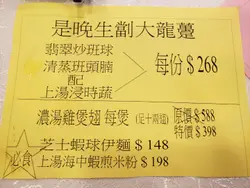 是晚生劏大龍躉
翡翠炒班球
清蒸班頭腩
配
上湯浸時蔬
每份 $ 268
濃湯雞煲翅 每煲 (足十両) 原價 $ 588
特價 $ 398
芝士蝦球伊麵 $ 148
上湯海中蝦煎米粉 $ 198
必食